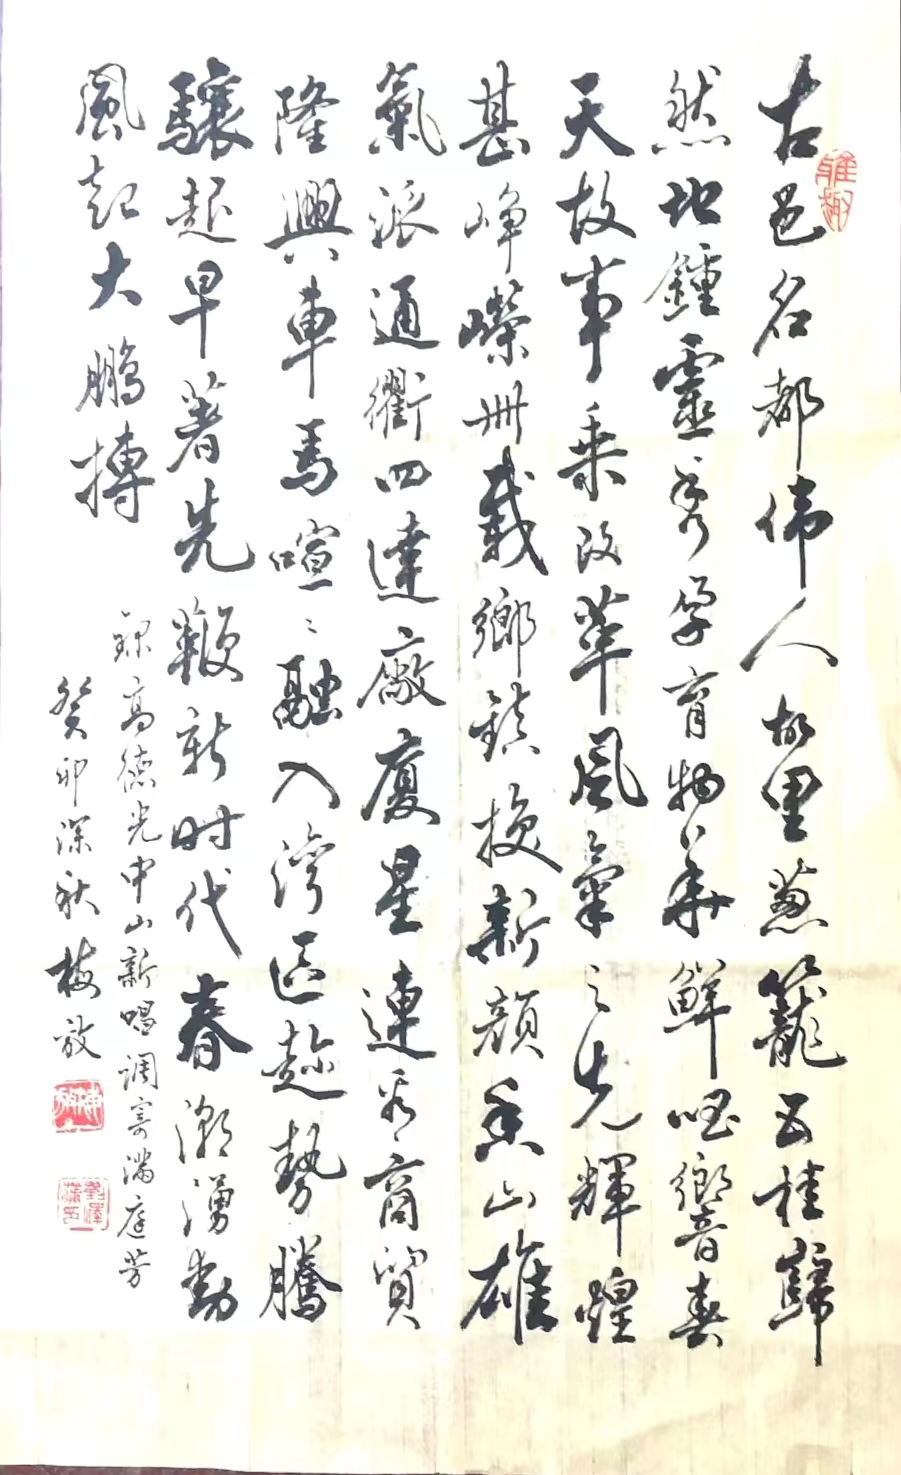 古邑名都偉人故里蔥籠五桂巋
然地鍾靈秀孕育物華鮮唱響春
天故事乘改革風氣之先輝煌
甚崢嶸卅載鄉鎮換新顏香山雄
氣派通衢四達廠廈星連看商貿
隆興車馬喧〻融入灣區趁勢騰
驤起早著先鞭新时代春潮湧動
風起大鵬摶
錄高德光中山新唱调寄滿庭芳
癸卯深秋梅
雅趣